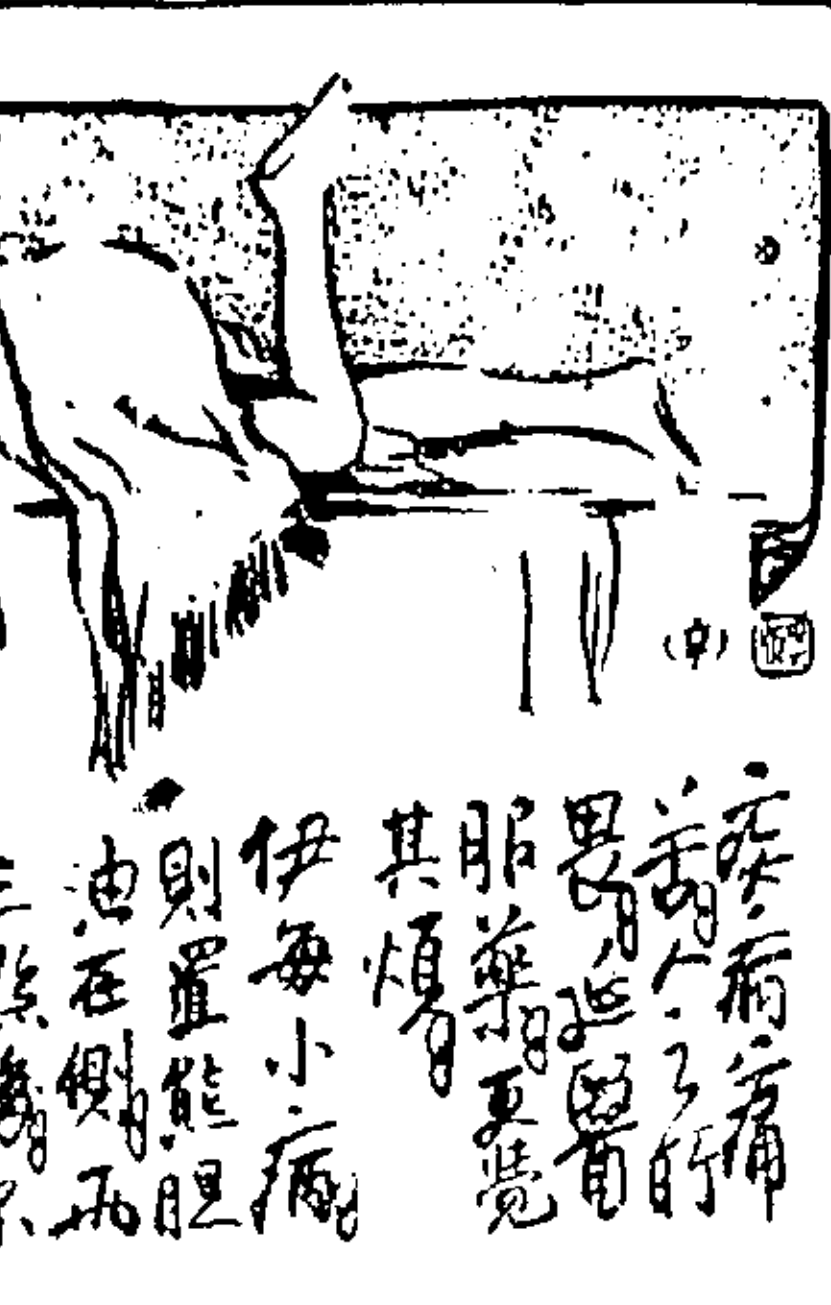 (中)
疾病痛
苦。人之所
畏。延醫
服藥。更覺
其煩。
伊每小病。
則置熊胆
油在側。而